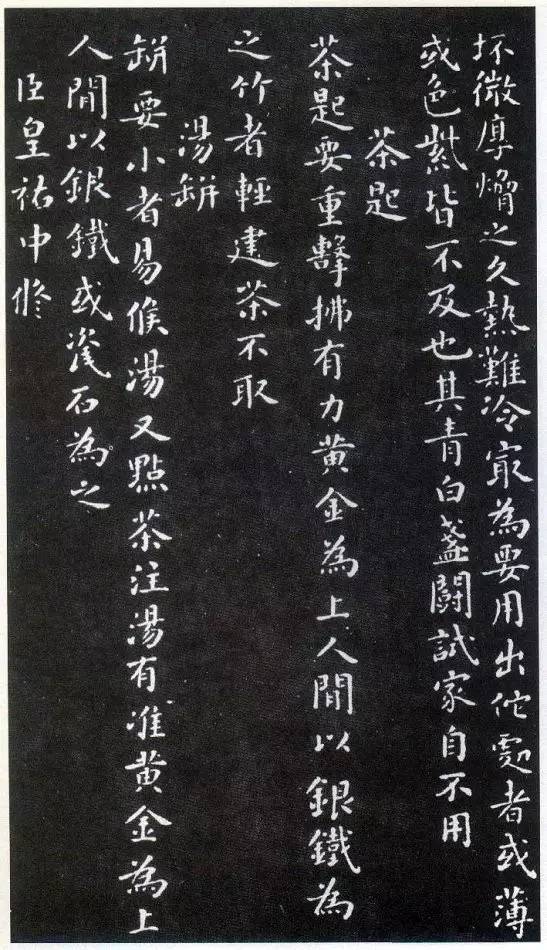 坯微厚熁之久熱難冷最為要用出佗處者或薄
或色紫皆不及也其青白盞鬪試家自不用
茶匙
茶匙要重擊拂有力黃金為上人間以銀鐵為
之竹者輕建茶不取
湯缾
缾要小者易候湯又點茶注湯有准黃金為上
人間以銀鐵或瓷石為之
臣皇祐中修